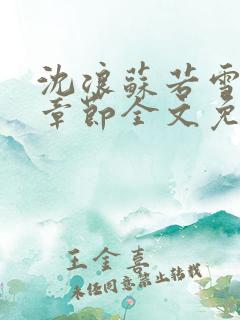 沈浪蘇若雪
章節全文免
王金喜
未经同意禁止转载